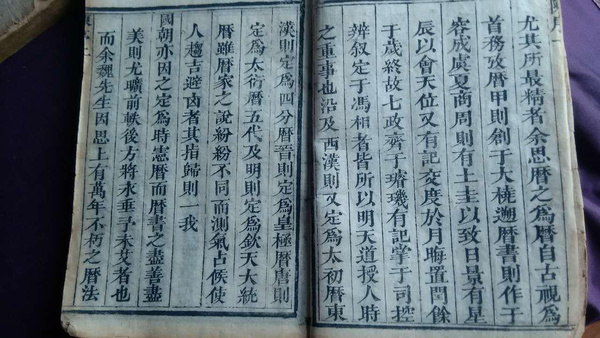 尤其所最精者余思曆之為曆自古視為
首務攷曆甲則創于大撓遡曆書則作于
容成虞夏商周則有土圭以致日景有星
辰以會天位又有記交度於月晦置閏餘
于歲終故七政齊于璿璣有記掌于司控
辨叙定于馮相者皆所以明天道授人時
之重事也沿及西漢則又定為太初曆東
漢則定為四分曆晉則定為皇極曆唐則
定為大衍曆五代及明則定為欽天大統
曆雖曆家之說紛紛不同而測氣占候使
人趨吉避㐫者其指歸則一我
國朝亦因之定為時憲曆而曆書之盡善盡
美則尤曠前軼後方將永垂于未艾者也
而余魏先生因思上有萬年不朽之曆法